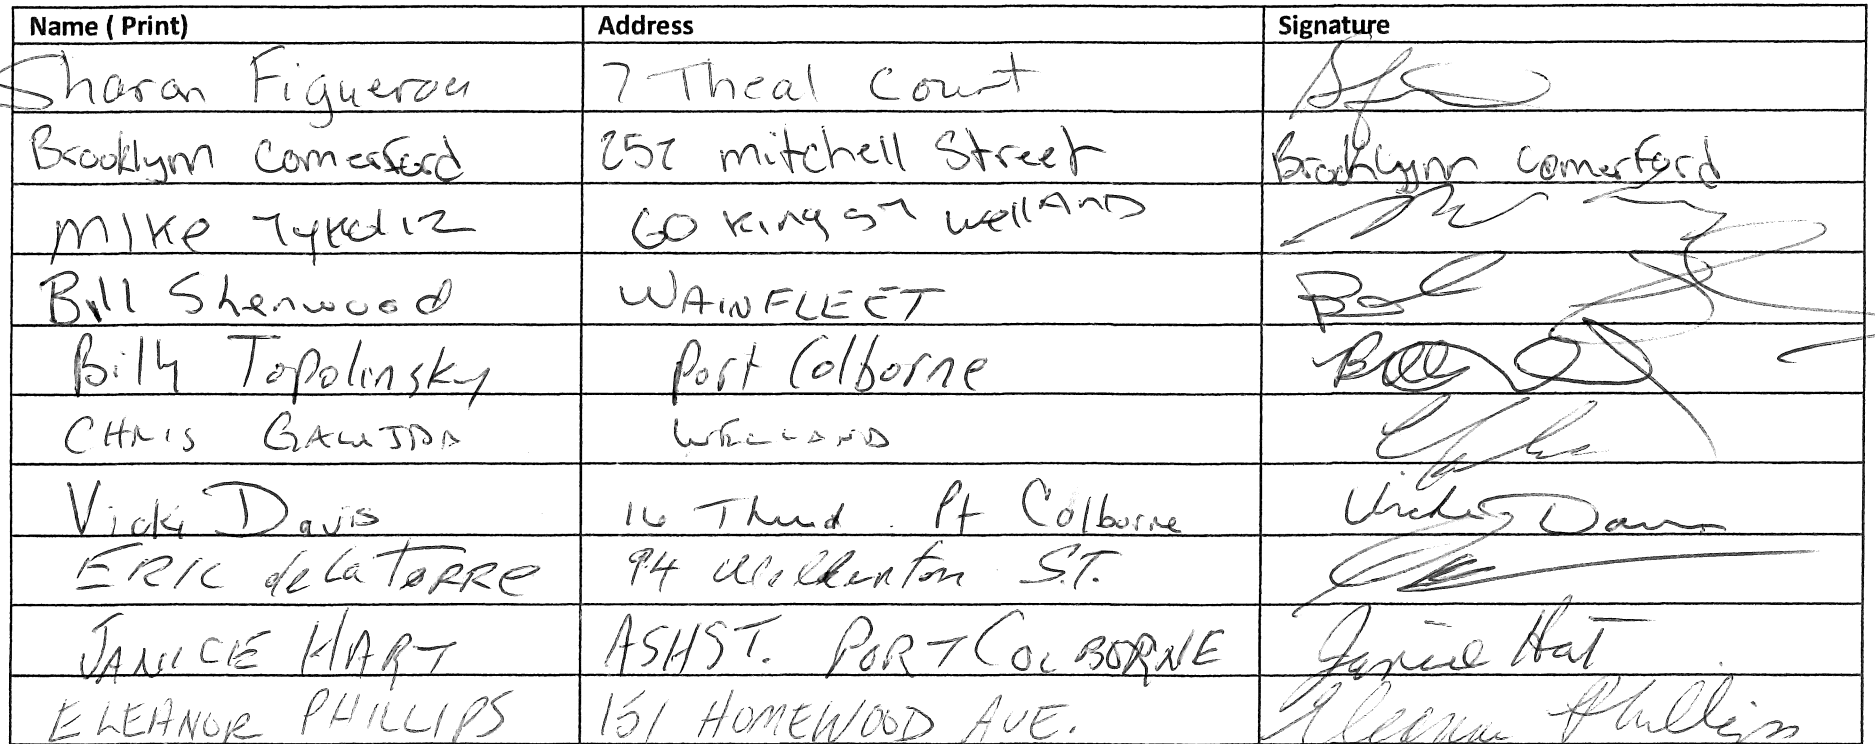 Name ( Print) Address Signature
Sharon Figueroa 7 Theal Court
Brooklynn Comerford 252 mitchell Street Brooklynn Comerford
MIKe 60 King ST WellAND
Bill Sherwood WAINFLEET Bill
Billy Topolinsky Port Colborne Bill
CHRIS WELLAND
Vicki Davis 16 Pt Colborne Vicki Davis
ERIC de La TORRe 94 S.T.
JANICE HART ASH ST. PORT COLBORNE Janice Hart
ELEANOR PHILLIPS 151 HOMEWOOD AVE. Eleanor Phillips